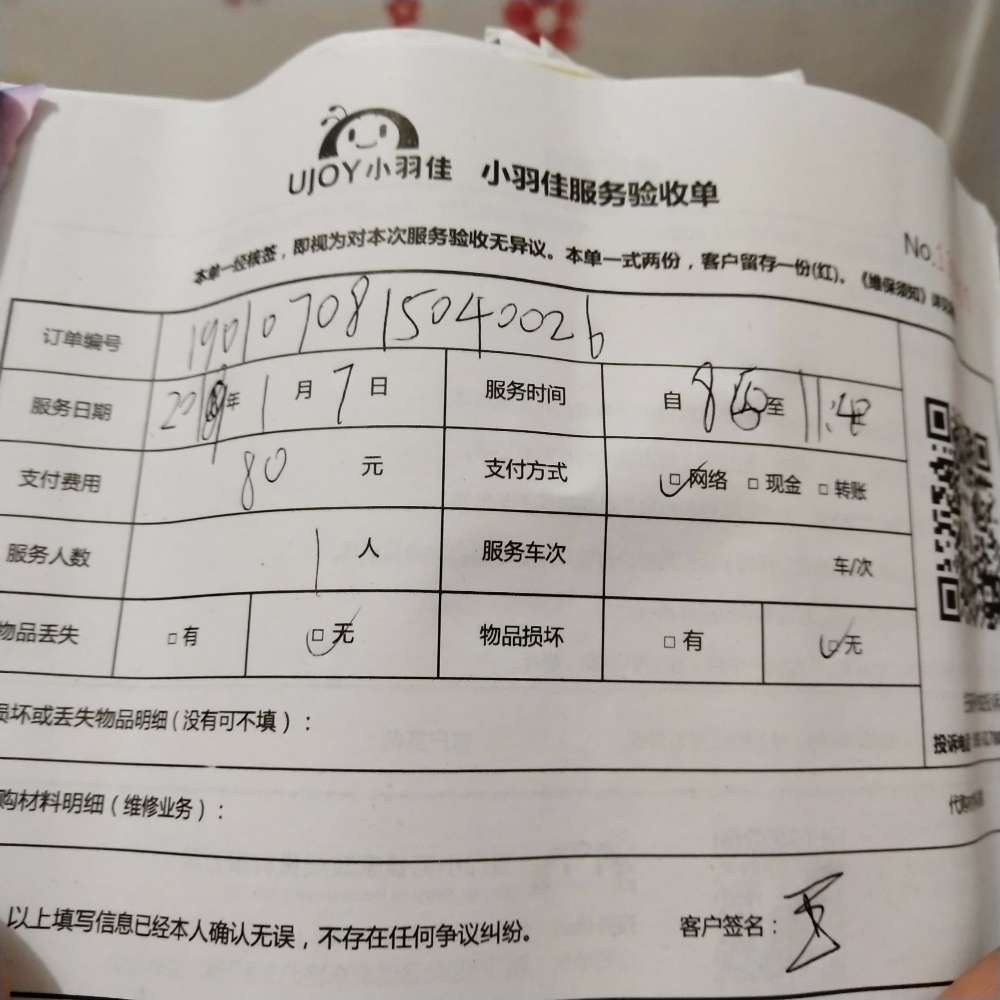 UJOY小羽佳 小羽佳服务验收单
No.
本单一经核签，即视为对本次服务验收无异议。本单一式两份，客户留存一份(红)。《维保须知》
订单编号 1901070815040026
服务日期 2019年1月7日 服务时间 自8 至11:
支付费用 80元 支付方式 □网络 □现金 □转账
服务人数 1人 服务车次 车/次
物品丢失 □有 □无 物品损坏 □有 □无
损坏或丢失物品明细(没有可不填)：
投诉电
购材料明细(维修业务)：
以上填写信息已经本人确认无误，不存在任何争议纠纷。 客户签名：